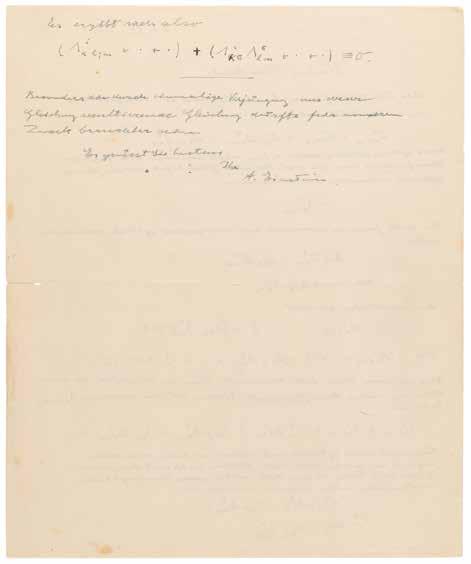 Es ergibt sich also
(Λ^i_{κl;m} + · + ·) + (Λ^i_{κσ} Λ^σ_{lm} + · + ·) ≡ 0.
Besonders die durch einmalige Verjüngung aus dieser
Gleichung resultierende Gleichung dürfte für unseren
Zweck brauchbar sein.
Es grüsst Sie bestens
Ihr
A. Einstein.